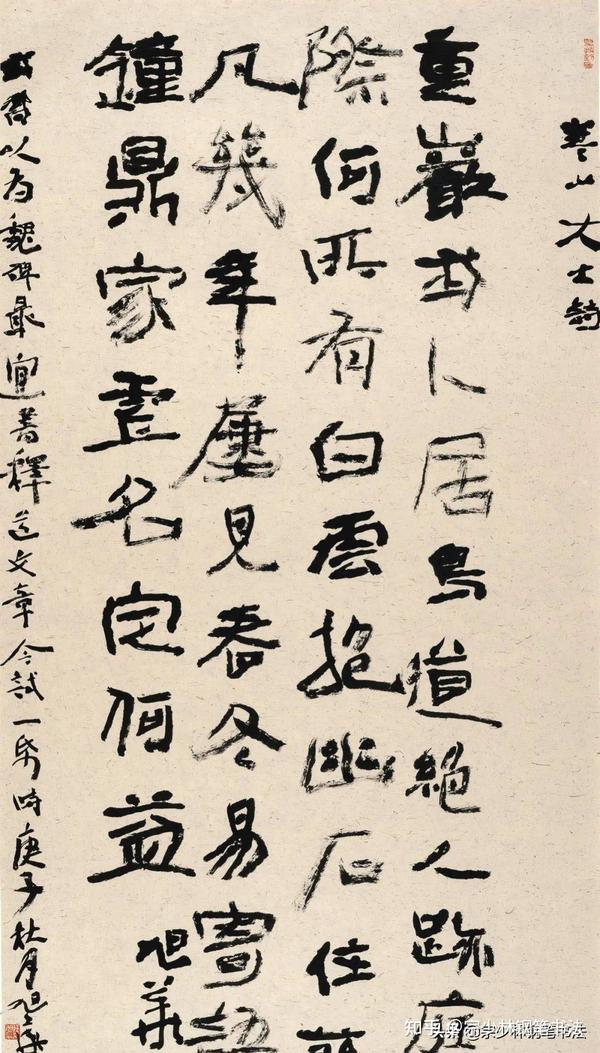 寒山大士詩
重巖我卜居鳥道絕人跡庭
際何所有白雲抱幽石住茲
凡幾年屢見春冬易寄語
鐘鼎家虛名定何益
旭華
以为魏碑最宜著釋道文章今試一帋時庚子月旭華
知乎
少林钢笔书法